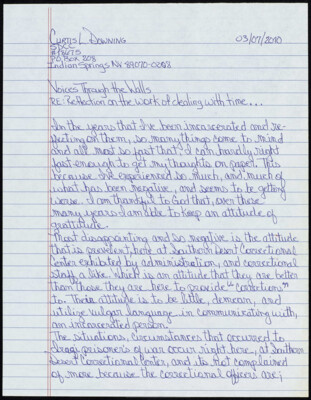 Curtis L. Downing 03/07/2010
SDCC
P.O. Box 208
Indian Springs NV 89070-0208
Voices Through the Walls
RE: Reflection on the work of dealing with time...
In the years that I've been incarcerated and re-
flecting on them, so many things come to mind
and all most so fast that I can hardly right
fast enough to get my thoughts on paper. This
because I've experienced so much, and much of
what has been negative, and seems to be getting
worse. I am thankful to God that, over these
many years I am able to keep an attitude of
gratitude.
Most disapointing and so negative is the attitude
that is prevelent, here at Southern Desert Correctional
Center exhibited by administration, and correctional
staff a like. Which is an attitude that they are better
than those they are here to provide "corrections"
to. Their attitude is to be little, demean, and
utilize vulgar language in communicating with,
an incarcerated person.
The situations, circumstances that occurred to
Iraqi prisoner's of war occur right here, at Southern
Desert Correctional Center, and its not complained
of more because the correctional officers are;